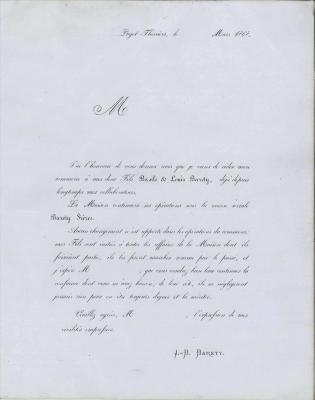 Puget-Théniers, le Mars 186
M
J'ai l'honneur de vous donner avis que je viens de céder mon
commerce à mes deux Fils Basile & Louis Barety, déjà depuis
longtemps mes collaborateurs.
La Maison continuera ses opérations sous la raison sociale
Barety Frères.
Aucun changement n'est apporté dans les opérations du commerce,
mes Fils sont initiés à toutes les affaires de la Maison dont ils
faisaient partie, ils les feront marcher comme par le passé, et
j'espère M que vous voudrez bien leur continuer la
confiance dont vous m'avez honoré, de leur côté, ils ne négligeront
jamais rien pour en être toujours dignes et la mériter.
Veuillez agréer, M l'expression de mes
civilités empressées.
J.-B. BARETY.